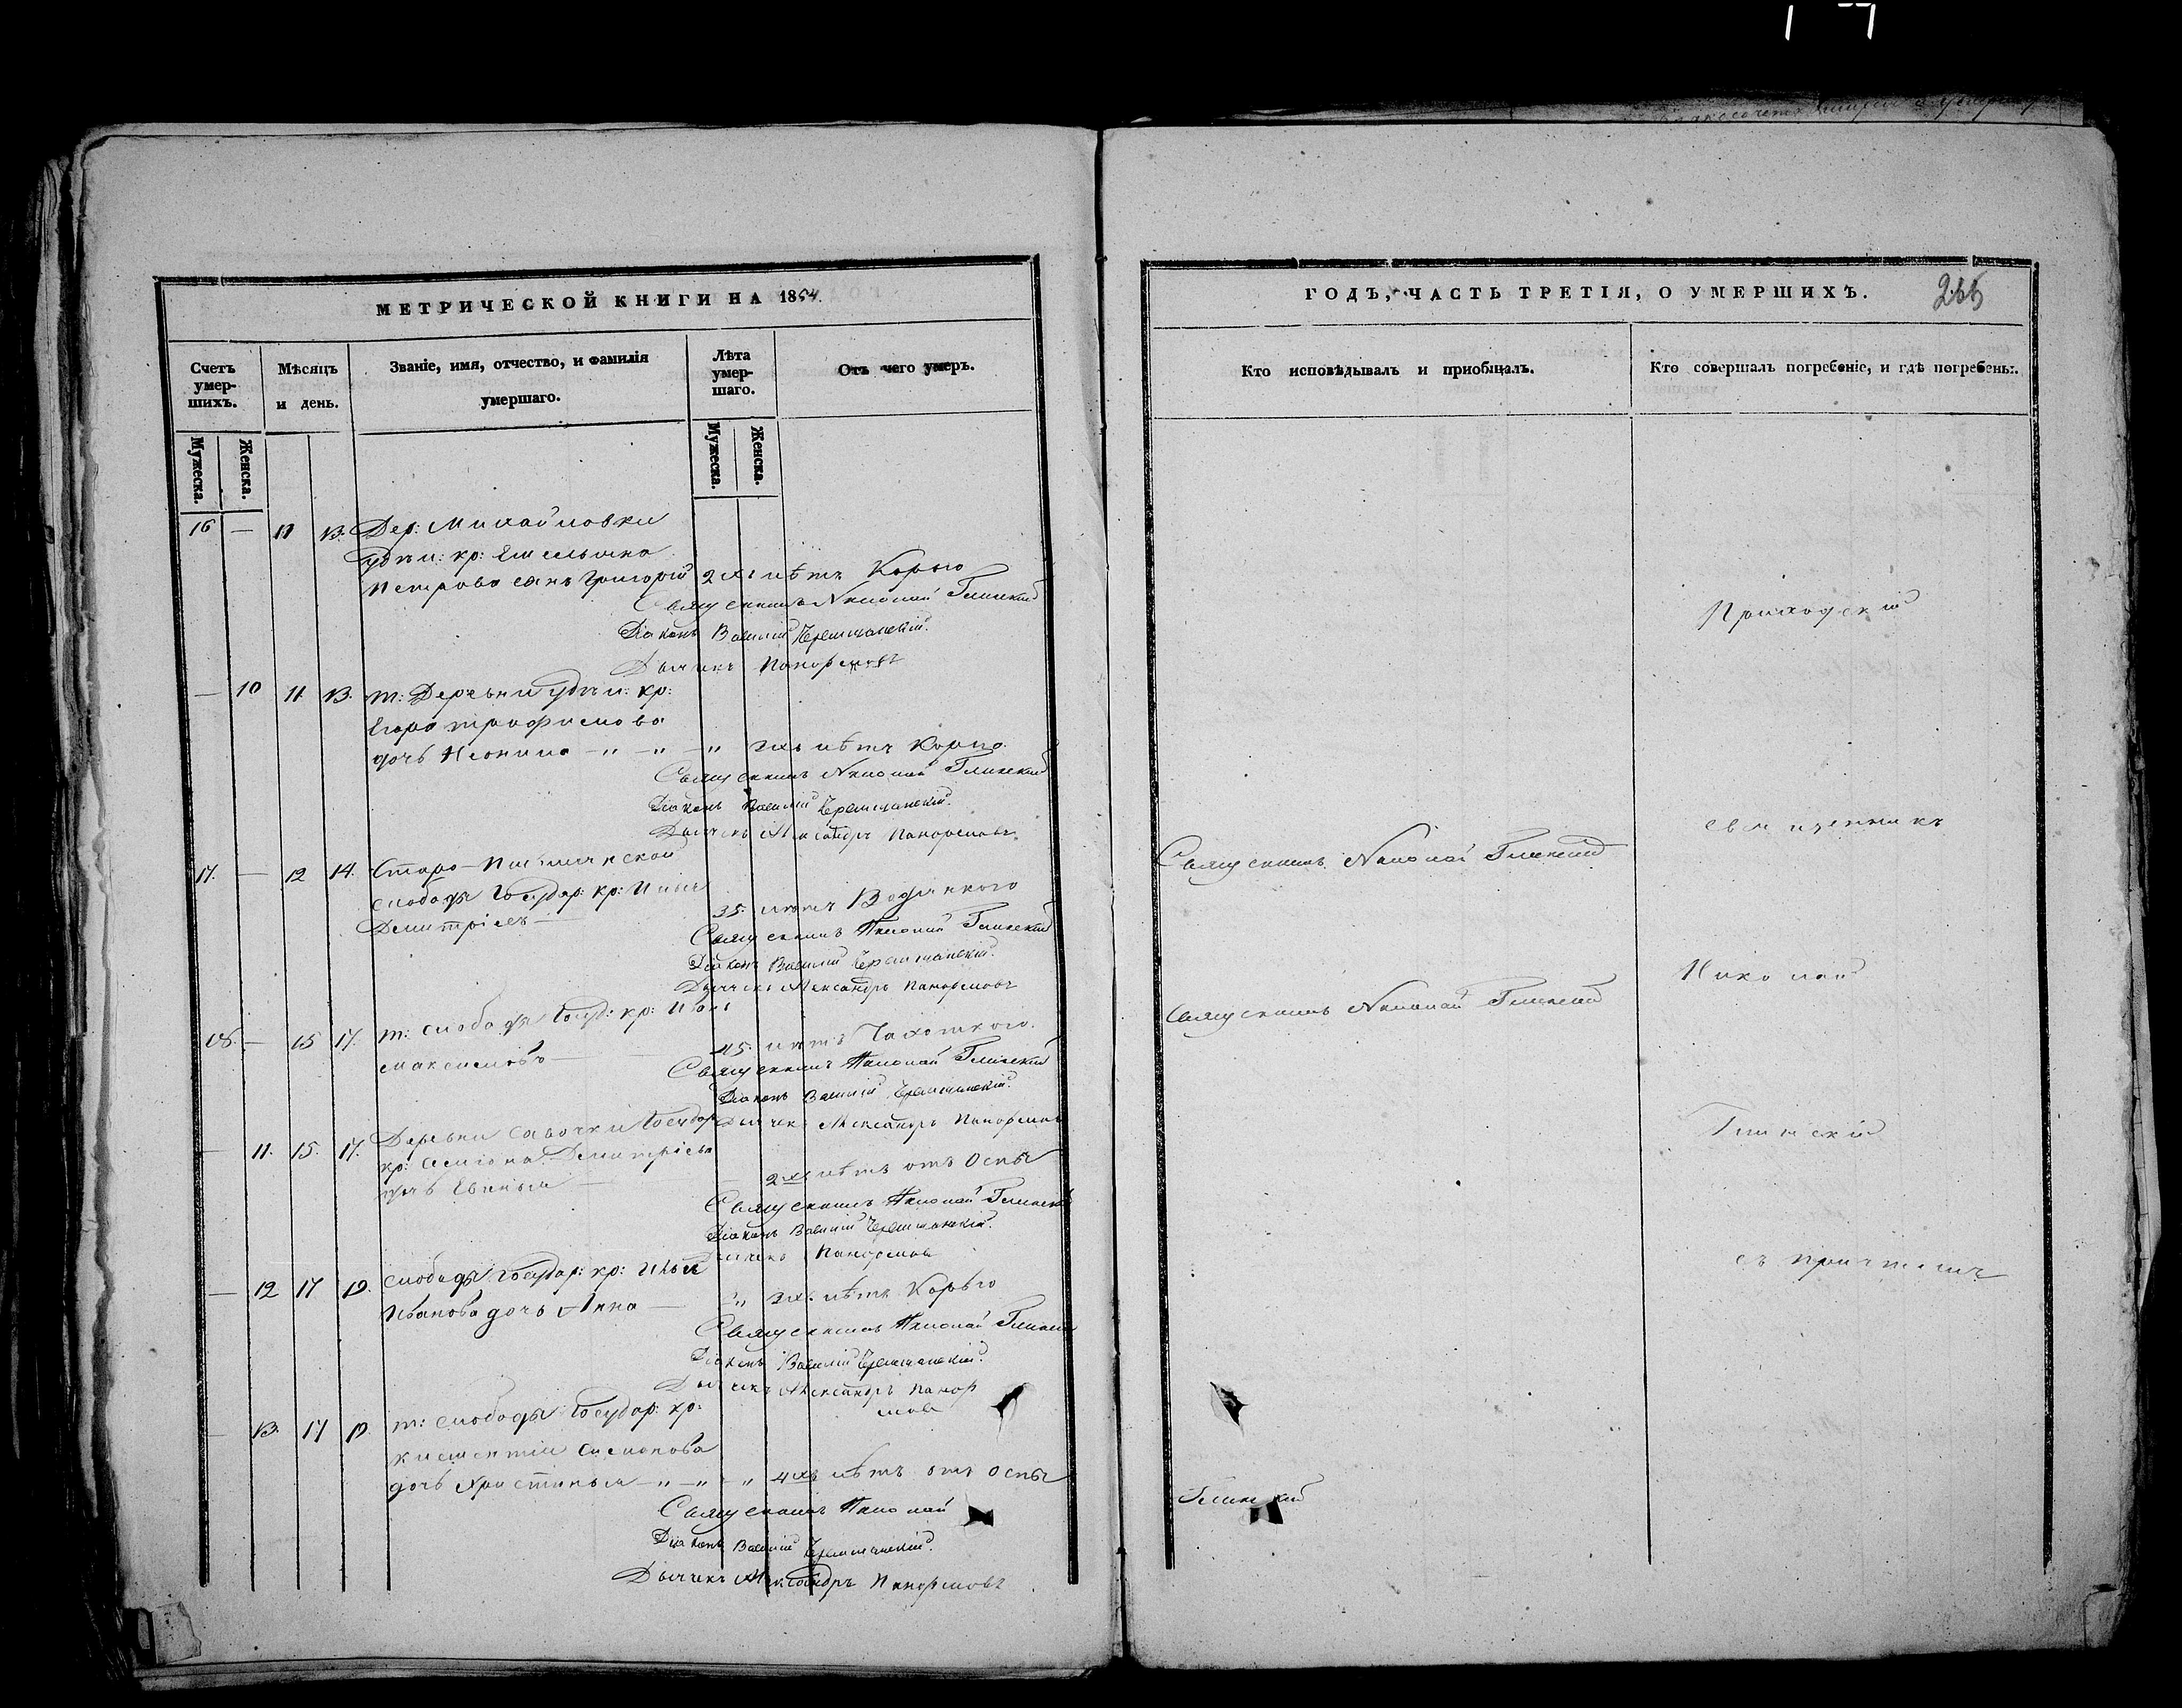 МЕТРИЧЕСКОЙ КНИГИ НА 1854.
Счетъ умер-шихъ.
Мѣсяцъ и день.
Званіе, имя, отчество, и фамилія умершаго.
Лѣта умер-шаго.
Отъ чего умеръ.
Мужеска.
Женска.
Мужеска.
Женска.
16 — 11 13. Дер: Михайловки
удѣл: кр: Емельяна
Петрова сынъ Григорій 2хъ лѣтъ Корью
Священникъ Николай Глинскій
Діаконъ Василій Черемшанскій.
Дьячекъ Панормовъ
— 10 11. 13. т: Деревни удѣл: кр:
Егора Трофимова
дочь Неонила — „ — „ — „ лѣтъ Корью
Священникъ Николай Глинскій
Діаконъ Василій Черемшанскій.
Дьячекъ Александръ Панормовъ
17. — 12 14. Старо-
слободы Государ: кр:
Дмитріевъ — 35. лѣтъ Водянкою
Священникъ Николай Глинскій
Діаконъ Василій Черемшанскій.
Дьячекъ Александръ Панормовъ
18. — 15 17. т: слободы Госуд: кр:
Максимовъ — 45. лѣтъ Чахоткою.
Священникъ Николай Глинскій
Діаконъ Василій Черемшанскій.
Дьячекъ Александръ Панормовъ
— 11. 15. 17. Деревни Савочки Государ:
кр: Дмитріева
дочь — 2хъ лѣтъ отъ Оспы
Священникъ Николай Глинскій
Діаконъ Василій Черемшанскій.
Дьячекъ Панормовъ
— 12 17 19. слободы Государ: кр: Ильи
Иванова дочь Анна — „ лѣтъ Корью
Священникъ Николай Глинскій
Діаконъ Василій Черемшанскій.
Дьячекъ Александръ Панор
мовъ
— 13. 17 19 т: слободы Государ: кр:
Климентія Симонова
дочь Христинья — „ — „ — „ 4хъ лѣтъ отъ Оспы
Священникъ Николай
Діаконъ Василій Черемшанскій.
Дьячекъ Александръ Панормовъ
ГОДЪ, ЧАСТЬ ТРЕТІЯ, О УМЕРШИХЪ.
Кто исповѣдывалъ и приобщалъ.
Кто совершалъ погребеніе, и гдѣ погребены.
Священникъ Николай Глинскій
Священникъ Николай Глинскій
Глинскій
Приходскій
священникъ
Николай
Глинскій
съ причтомъ